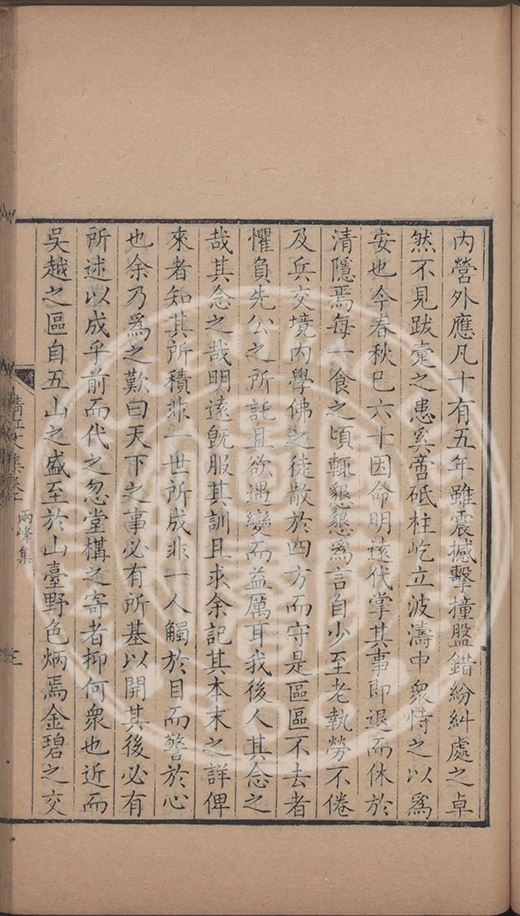 內營外應凡十有五年雖震撼擊撞盤錯紛糾處之卓
然不見跋疐之患奚啻砥柱屹立波濤中衆恃之以爲
安也今春秋已六十因命明遠代掌其事即退而休於
清隱焉每一食之頃輒懇懇爲言自少至老執勞不倦
及兵交境內學佛之徒散於四方而守是區區不去者
懼負先公之所託且欲遇變而益厲耳我後人其念之
哉其念之哉明遠旣服其訓且求余記其本末之詳俾
來者知其所積非一世所成非一人觸於目而警於心
也余乃爲之歎曰天下之事必有所基以開其後必有
所述以成乎前而代之忽堂構之寄者抑何衆也近而
吳越之區自五山之盛至於山臺野色炳焉金碧之交
清江文集卷
兩峰集